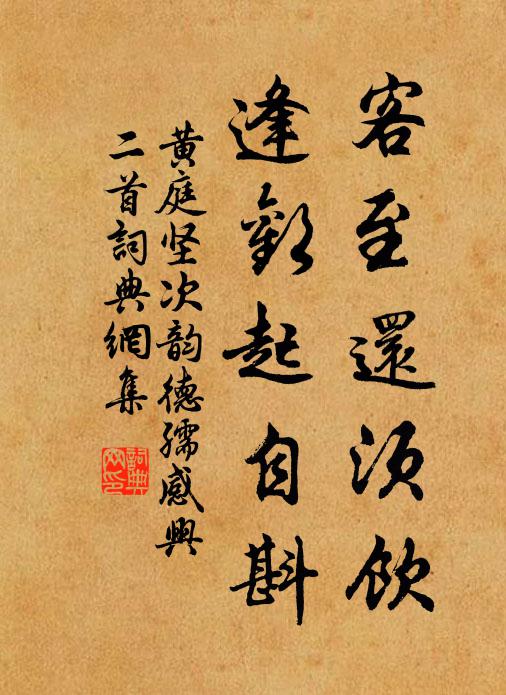 客至還須飲
逢歡起自斟
黄庭坚次韵德孺感興
二首詞典網集
詞典